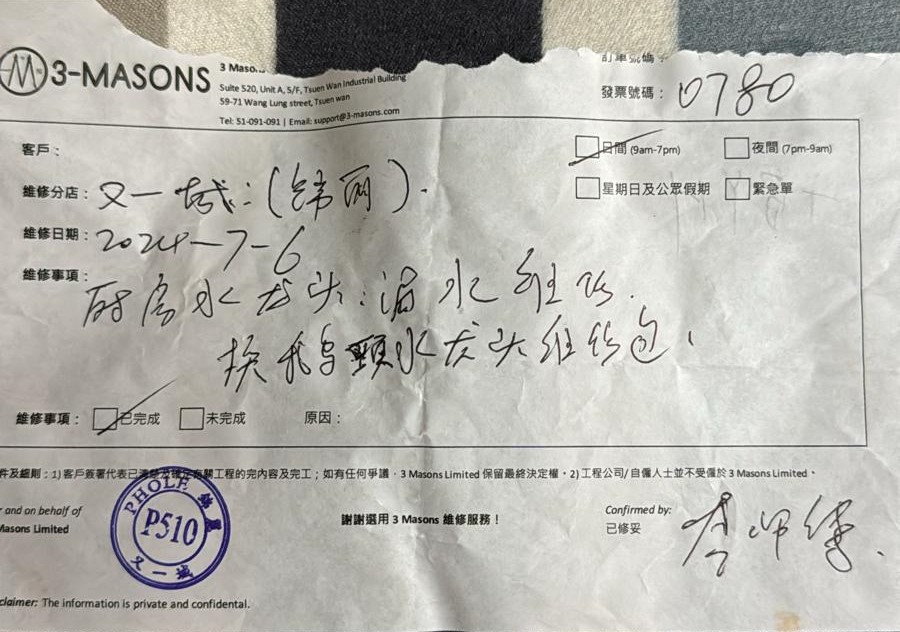 3-MASONS
Suite 520, Unit A, 5/F, Tsuen Wan Industrial Building
59-71 Wang Lung street, Tsuen wan
Tel: 51-091-091 | Email: support@3-masons.com
發票號碼： 0780
客戶：
日間 (9am-7pm) 夜間 (7pm-9am)
維修分店：又一城：(鋒丽).
星期日及公眾假期 緊急單
維修日期：2024-7-6
維修事項：
厨房水龙头：漏水维修.
换鹅頸水龙头维修包.
維修事項： 已完成 未完成 原因：
件及細則：1) 客戶簽署代表已工程的完內容及完工；如有任何爭議，3 Masons Limited 保留最終決定權。2) 工程公司/自僱人士並不受僱於 3 Masons Limited。
r and on behalf of
Masons Limited
PHOLE
P510
又一城
謝謝選用 3 Masons 維修服務！
Confirmed by:
已修妥
李师傅.
claimer: The information is private and confidential.